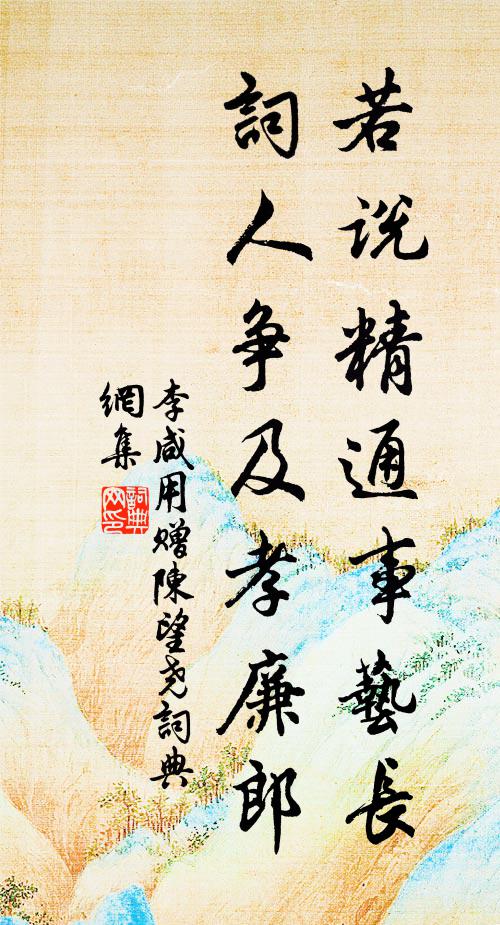 若说精通事藝長
詞人争及孝廉郎
李咸用赠陳望尧詞典
網集
詞典
网印